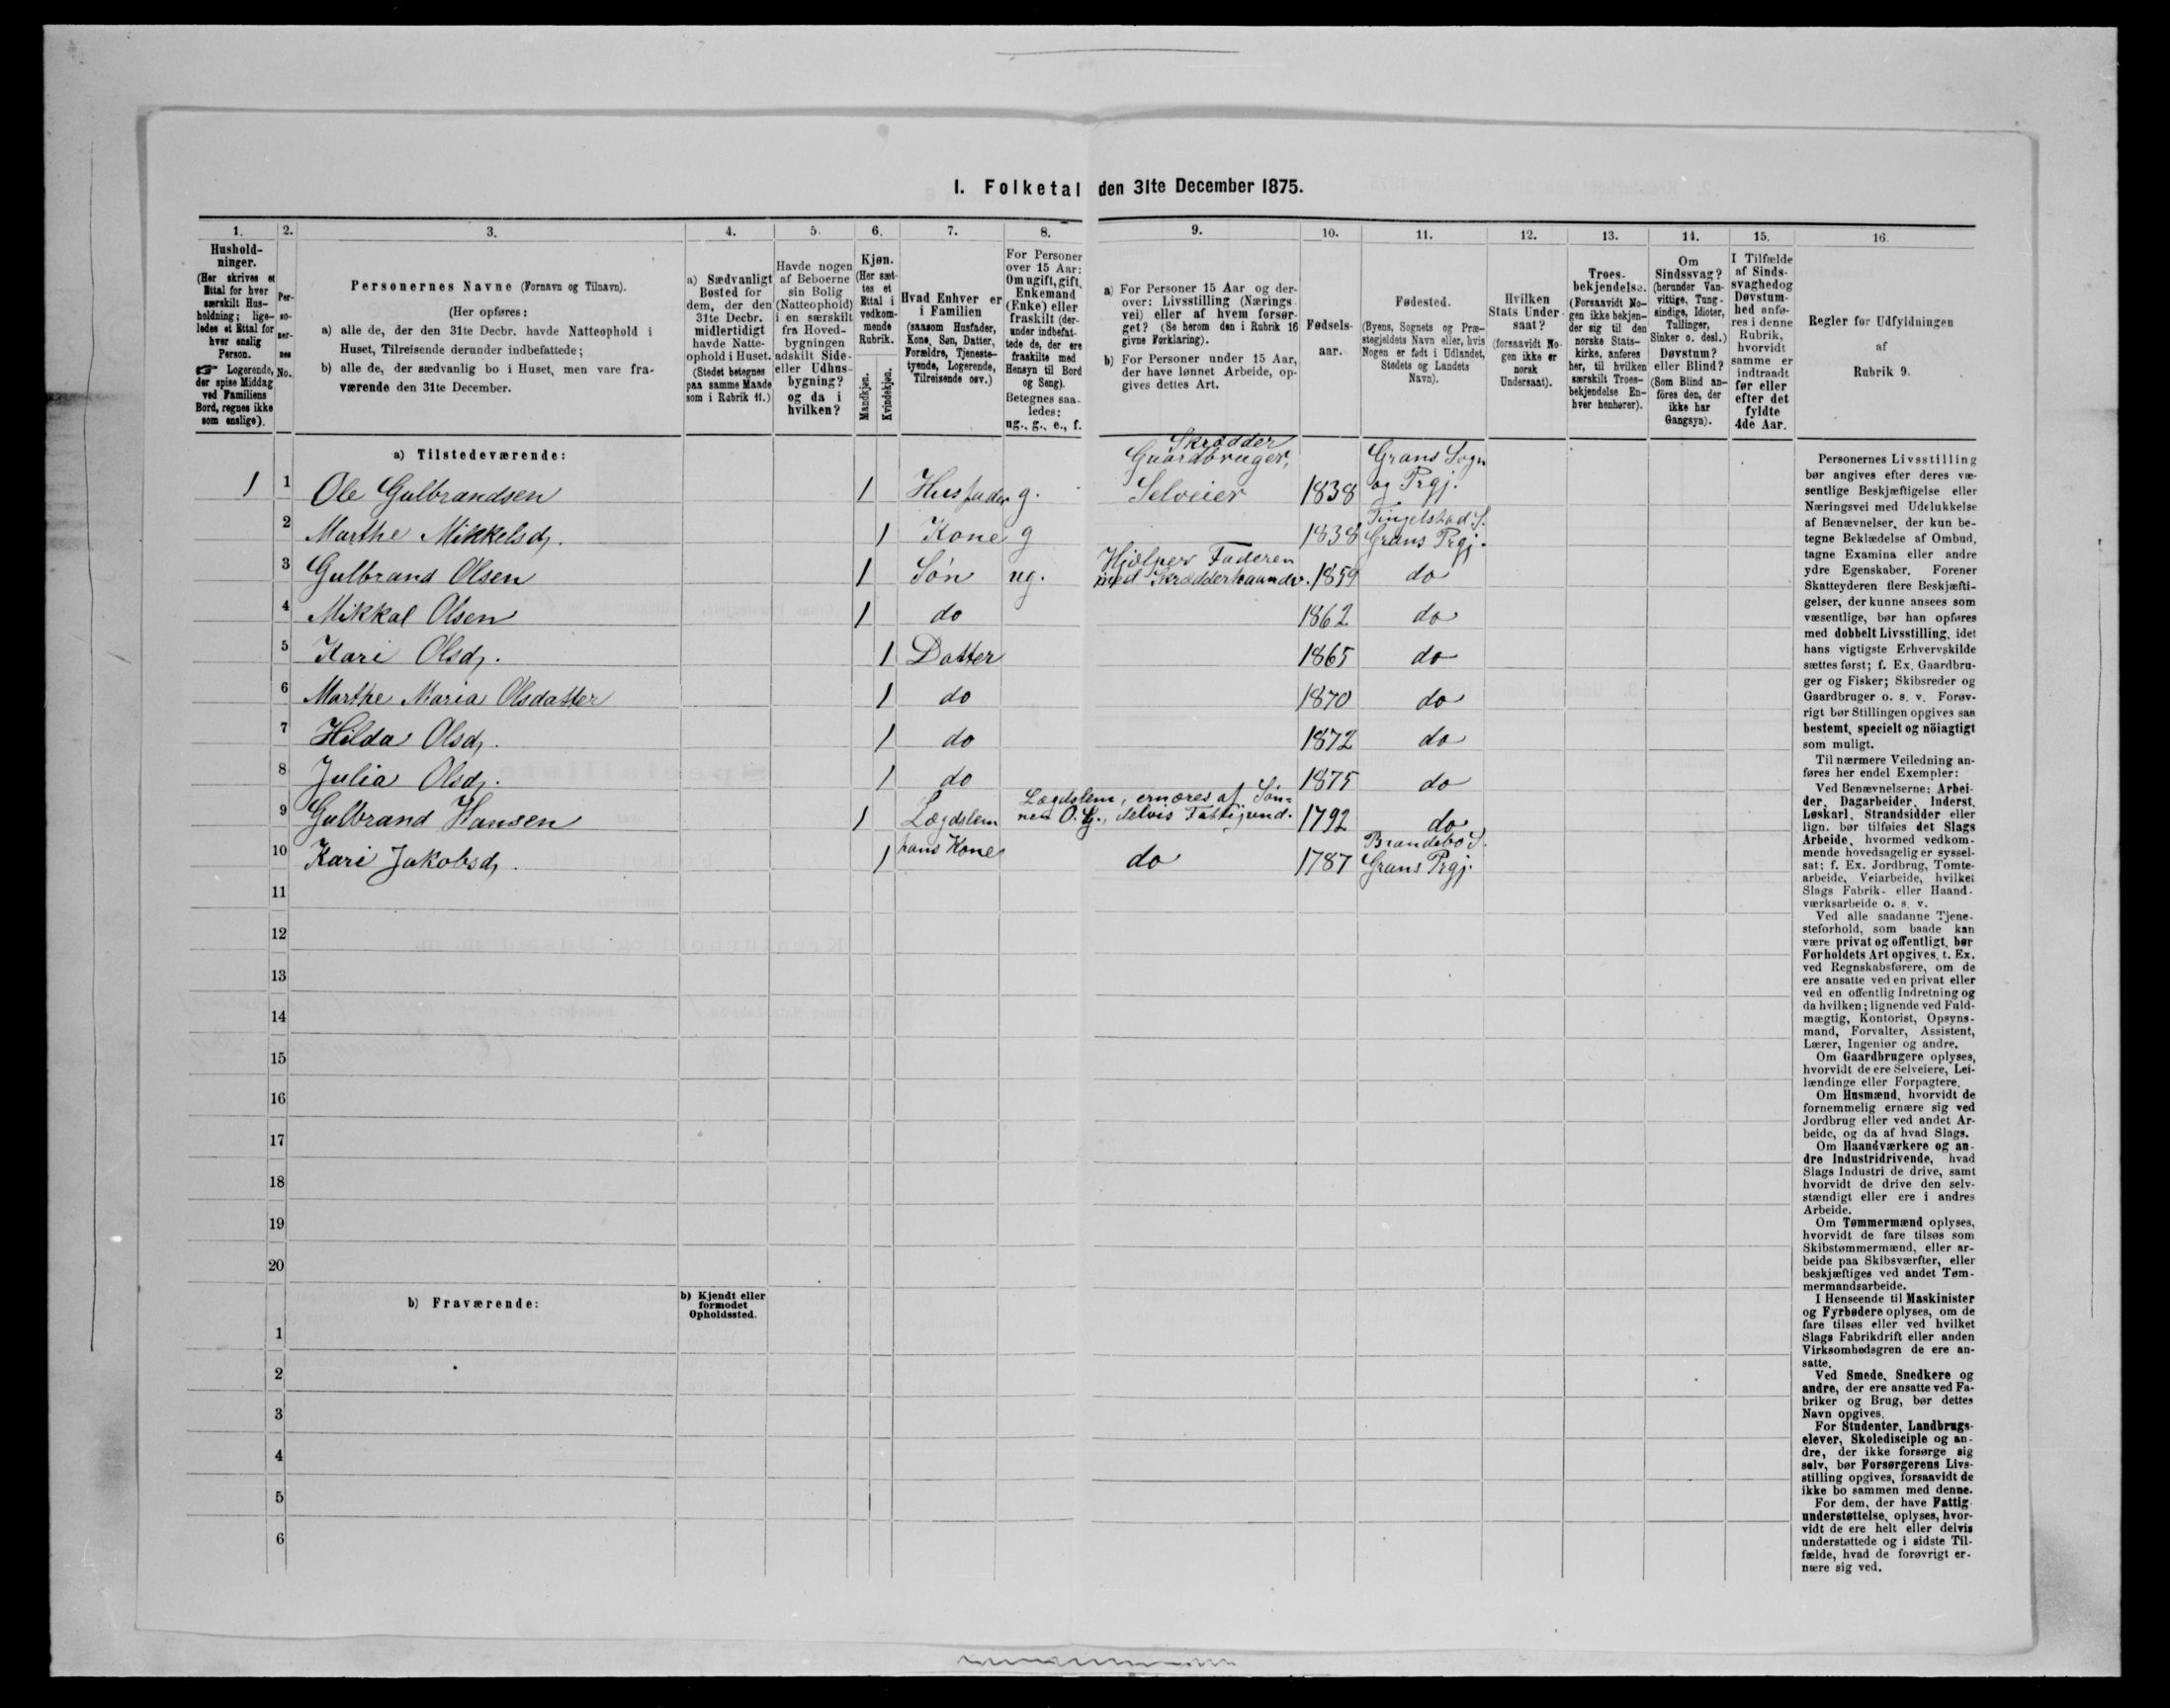 1. Folketal den 31te December 1875.
1.
Hushold-
ninger.
(Her skrives et
Ettal for hver
særskilt Hus-
holdning; lige-
ledes et Ettal for
hver enslig
Person.
☞ Logerende,
der spise Middag
ved Familiens
Bord, regnes ikke
som enslige).
2.
Per-
so-
ner-
nes
No.
3.
Personernes Navne (Fornavn og Tilnavn).
(Her opføres:
a) alle de, der den 31te Decbr. havde Natteophold i
Huset, Tilreisende derunder indbefattede;
b) alle de, der sædvanlig bo i Huset, men vare fra-
værende den 31te December.
4.
a) Sædvanligt
Bosted for
dem, der den
31te Decbr.
midlertidigt
havde Natte-
ophold i Huset.
(Stedet betegnes
paa samme Maade
som i Rubrik 11.)
5.
Havde nogen
af Beboerne
sin Bolig
(Natteophold)
i en særskilt
fra Hoved-
bygningen
adskilt Side-
eller Udhus-
bygning?
og da i
hvilken?
6.
Kjøn.
(Her sæt-
tes et
Ettal i
vedkom-
mende
Rubrik.
Mandkjøn.
Kvindekjøn.
7.
Hvad Enhver er
i Familien
(saasom Husfader,
Kone, Søn, Datter,
Forældre, Tjeneste-
tyende, Logerende,
Tilreisende osv.)
8.
For Personer
over 15 Aar:
Om ugift, gift,
Enkemand
(Enke) eller
fraskilt (der-
under indbefat-
tede de, der ere
fraskilte med
Hensyn til Bord
og Seng).
Betegnes saa-
ledes:
ug., g., e., f.
9.
a) For Personer 15 Aar og der-
over: Livsstilling (Nærings-
vei) eller af hvem forsør-
get? (Se herom den i Rubrik 16
givne Forklaring).
b) For Personer under 15 Aar,
der have lønnet Arbeide, op-
gives dettes Art.
10.
Fødsels-
aar.
11.
Fødested.
(Byens, Sognets og Præ-
stegjeldets Navn eller, hvis
Nogen er født i Udlandet,
Stedets og Landets
Navn).
12.
Hvilken
Stats Under-
saat?
(forsaavidt No-
gen ikke er
norsk
Undersaat).
13.
Troes-
bekjendelse.
(Forsaavidt No-
gen ikke bekjen-
der sig til den
norske Stats-
kirke, anføres
her, til hvilken
særskilt Troes-
bekjendelse En-
hver henhører).
14.
Om
Sindssvag?
(herunder Van-
vittige, Tung-
sindige, Idioter,
Tullinger,
Sinker o. desl.)
Døvstum?
eller Blind?
(Som Blind an-
føres den, der
ikke har
Gangsyn).
15.
I Tilfælde
af Sinds-
svaghedog
Døvstum-
hed anfø-
res i denne
Rubrik,
hvorvidt
samme er
indtraadt
før eller
efter det
fyldte
4de Aar.
16.
Regler for Udfyldningen
af
Rubrik 9.
a) Tilstedeværende:
1 1 Ole Gulbrandsen 1 Husfader g. Skrædder Gaardbruger, Selveier 1838 Grans Sogn og Prgj.
2 Marthe Mikkelsd. 1 Kone g 1838 Tingelstad S. Grans Prgj.
3 Gulbrand Olsen 1 Søn ug. Hjælper Faderen med Skrædderhaandv. 1859 do
4 Mikkal Olsen 1 do 1862 do
5 Kari Olsd. 1 Datter 1865 do
6 Marthe Maria Olsdatter 1 do 1870 do
7 Hilda Olsd. 1 do 1872 do
8 Julia Olsd. 1 do 1875 do
9 Gulbrand Hansen 1 Lægdslem Lægdslem, ernæres af Søn=
nen O. G., delvis Fattigund. 1792 do
10 Kari Jakobsd. 1 hans Kone do 1787 Brandebo S. Grans Prgj.
11
12
13
14
15
16
17
18
19
20
b) Fraværende:
b) Kjendt eller
formodet
Opholdssted.
1
2
3
4
5
6
Personernes Livsstilling
bør angives efter deres væ-
sentlige Beskjæftigelse eller
Næringsvei med Udelukkelse
af Benævnelser, der kun be-
tegne Beklædelse af Ombud,
tagne Examina eller andre
ydre Egenskaber. Forener
Skatteyderen flere Beskjæfti-
gelser, der kunne ansees som
væsentlige, bør han opføres
med dobbelt Livsstilling, idet
hans vigtigste Erhvervskilde
sættes først; f. Ex. Gaardbru-
ger og Fisker; Skibsreder og
Gaardbruger o. s. v. Forøv-
rigt bør Stillingen opgives saa
bestemt, specielt og nöiagtigt
som muligt.
Til nærmere Veiledning an-
føres her endel Exempler:
Ved Benævnelserne: Arbei-
der, Dagarbeider, Inderst,
Løskarl, Strandsidder eller
lign. bør tilføies det Slags
Arbeide, hvormed vedkom-
mende hovedsagelig er syssel-
sat; f. Ex. Jordbrug, Tomte-
arbeide, Veiarbeide, hvilket
Slags Fabrik- eller Haand-
værksarbeide o. s. v.
Ved alle saadanne Tjene-
steforhold, som baade kan
være privat og offentligt, bør
Forholdets Art opgives, t. Ex.
ved Regnskabsførere, om de
ere ansatte ved en privat eller
ved en offentlig Indretning og
da hvilken; lignende ved Fuld-
mægtig, Kontorist, Opsyns-
mand, Forvalter, Assistent,
Lærer, Ingeniør og andre.
Om Gaardbrugere oplyses,
hvorvidt de ere Selveiere, Lei-
lændinge eller Forpagtere.
Om Husmænd, hvorvidt de
fornemmelig ernære sig ved
Jordbrug eller ved andet Ar-
beide, og da af hvad Slags.
Om Haandværkere og an-
dre Industridrivende, hvad
Slags Industri de drive, samt
hvorvidt de drive den selv-
stændigt eller ere i andres
Arbeide.
Om Tømmermænd oplyses,
hvorvidt de fare tilsøs som
Skibstømmermænd, eller ar-
beide paa Skibsværfter, eller
beskjæftiges ved andet Tøm-
mermandsarbeide.
I Henseende til Maskinister
og Fyrbødere oplyses, om de
fare tilsøs eller ved hvilket
Slags Fabrikdrift eller anden
Virksomhedsgren de ere an-
satte.
Ved Smede, Snedkere og
andre, der ere ansatte ved Fa-
briker og Brug, bør dettes
Navn opgives.
For Studenter, Landbrugs-
elever, Skoledisciple og an-
dre, der ikke forsørge sig
selv, bør Forsørgerens Livs-
stilling opgives, forsaavidt de
ikke bo sammen med denne.
For dem, der have Fattig-
understøttelse, oplyses, hvor-
vidt de ere helt eller delvis
understøttede og i sidste Til-
fælde, hvad de forøvrigt er-
nære sig ved.